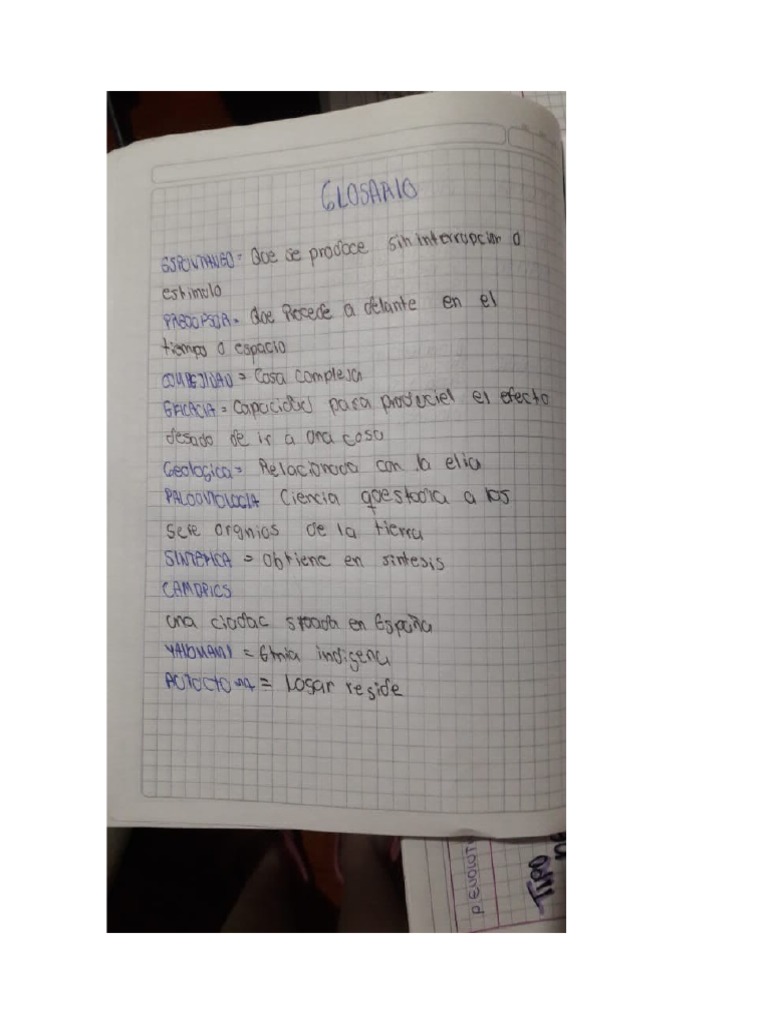 GLOSARIO
ESPONTANEO = Que se produce sin interrupcion o
estimulo
PREDOPSOR = Que Procede a delante en el
tiempo o espacio
COMPEJIDAD = Cosa compleja
EFICACIA = Capacidad para produciel el efecto
desado de ir a una cosa
Geologica = Relacionada con la elia
PALOONTOLOGIA Ciencia questodia a los
sere orgnios de la tierra
SINTETICA = Obtiene en sintesis
CAMDRICS
una ciadac stoada en España
YANOMANI = Etnia indigena
AOTOCTONA = Logar reside
P.EVOLOTI
TIPO